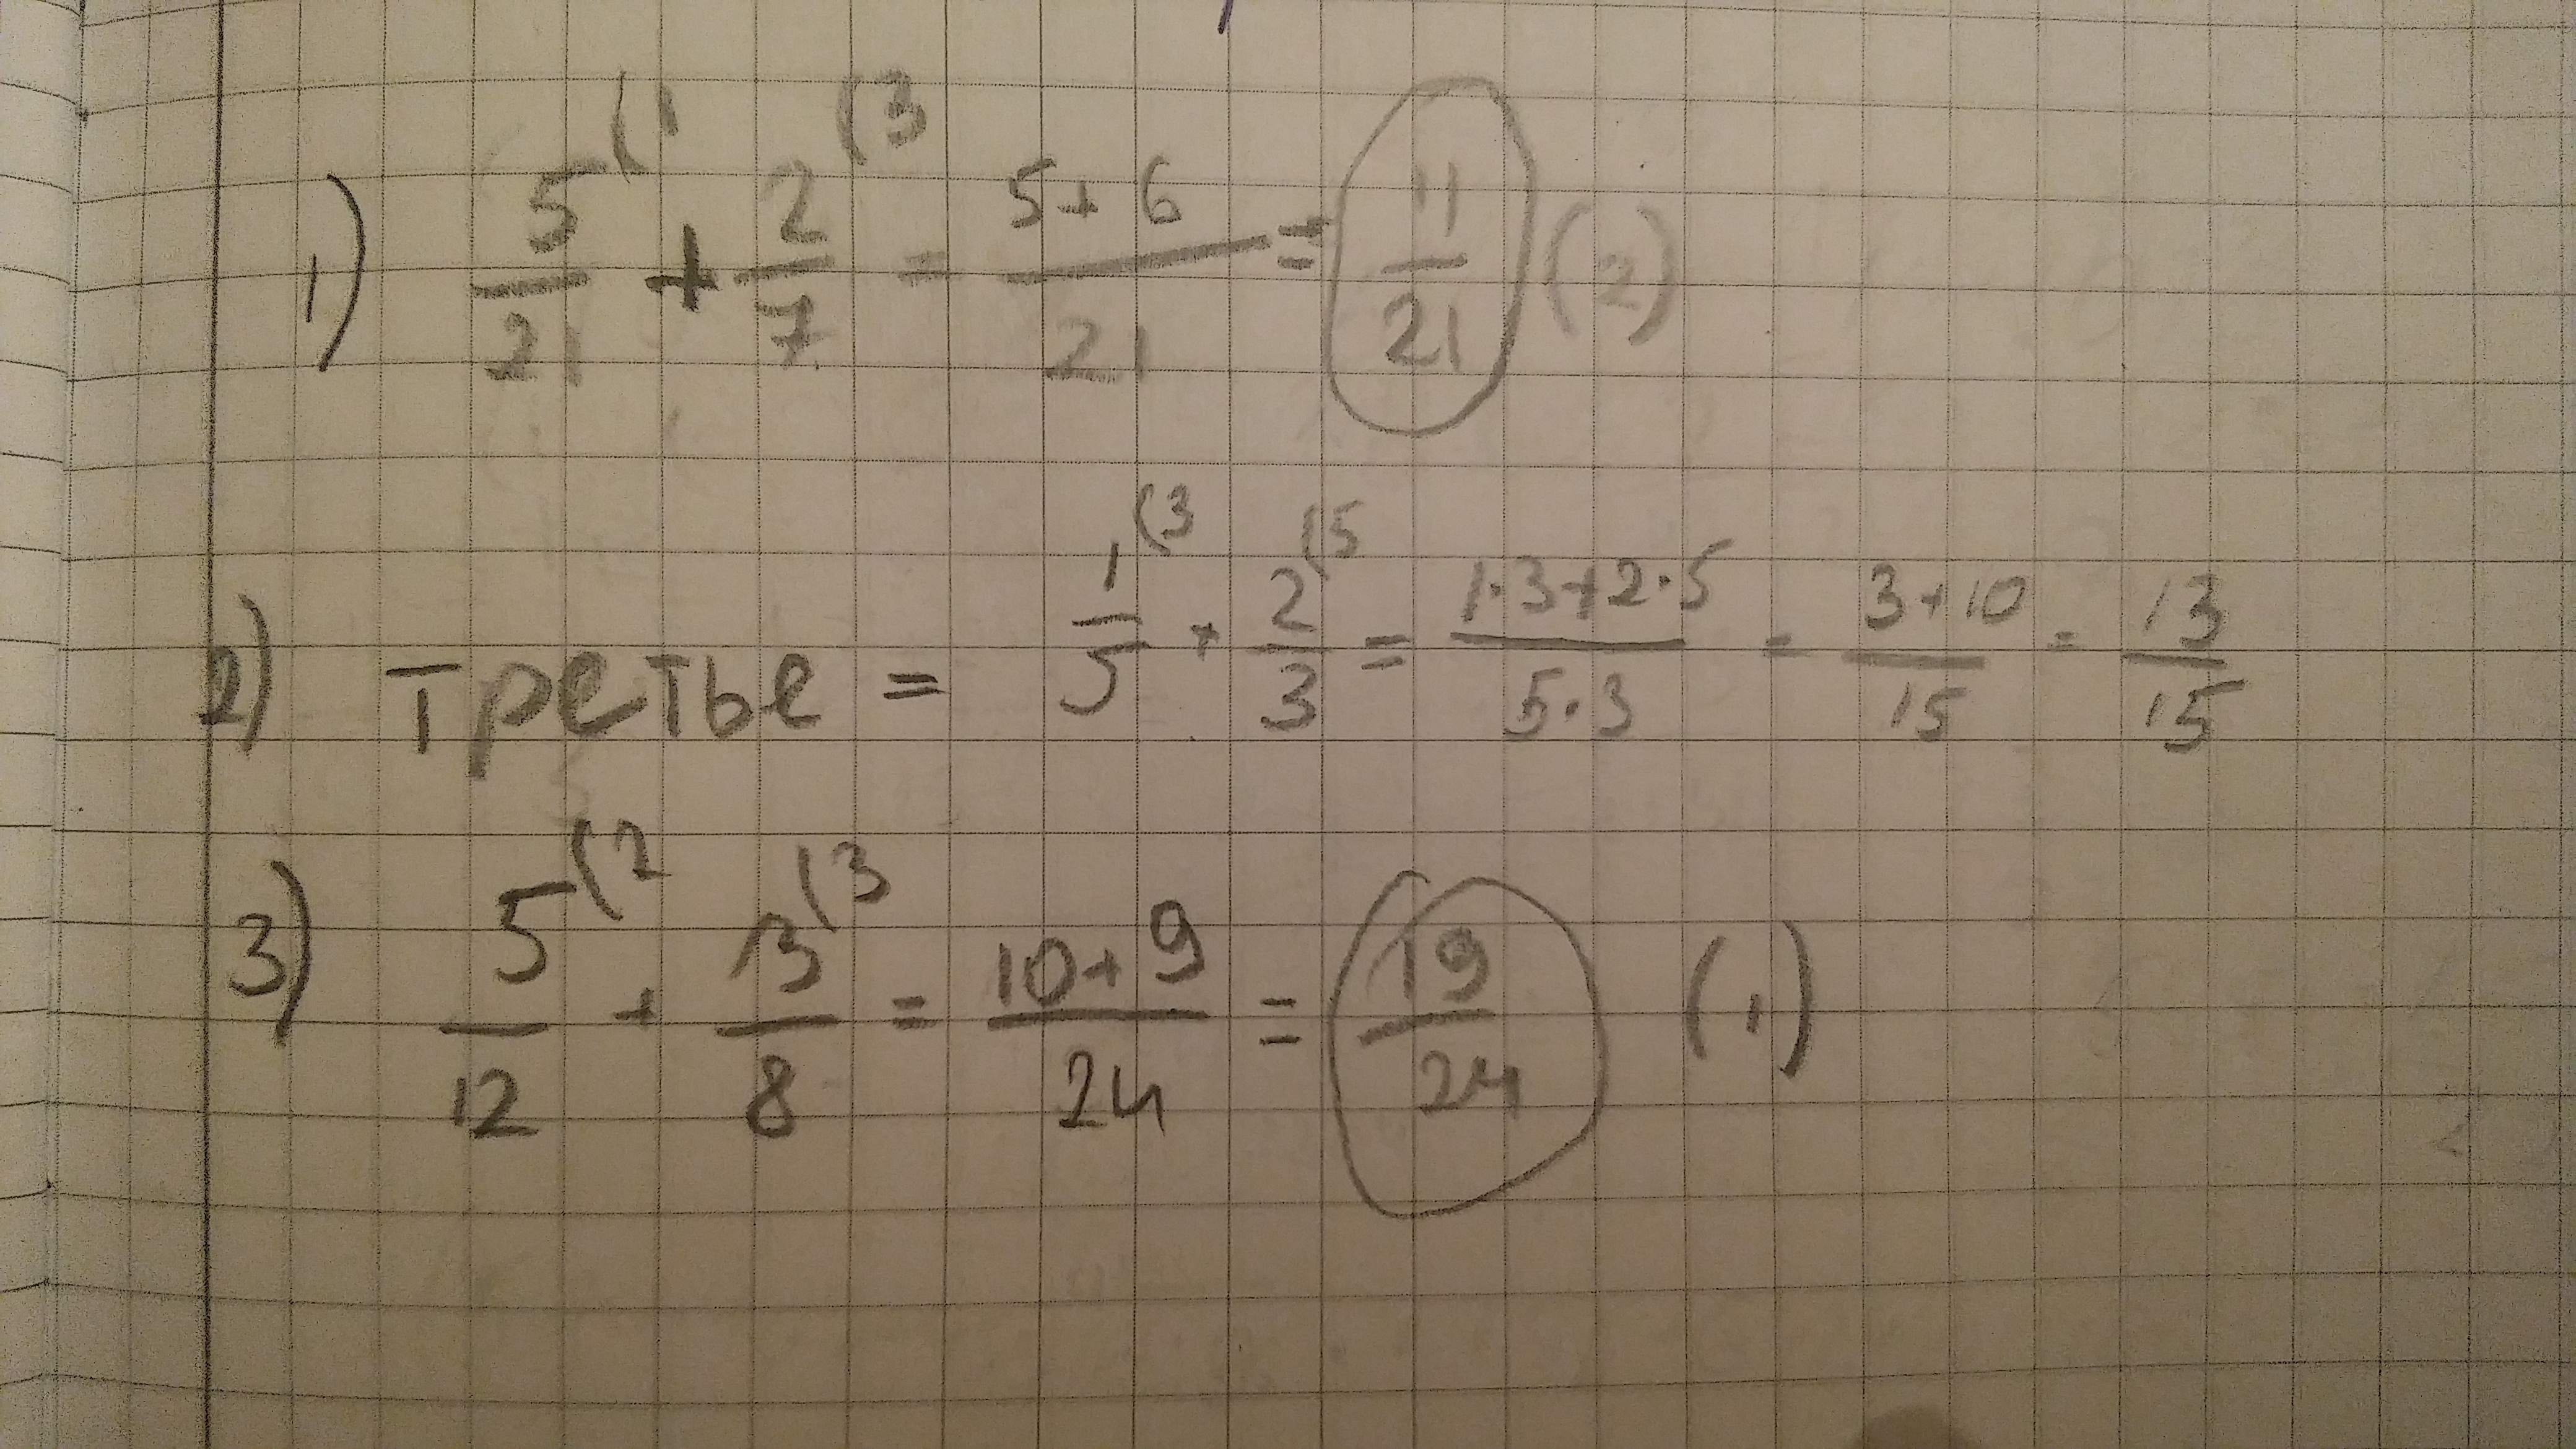 1) 5/21 (1 + 2/7 (3 = 5+6/21 = 11/21 (2)
2) Третье = 1/5 (3 + 2/3 (5 = 1·3+2·5/5·3 = 3+10/15 = 13/15
3) 5/12 (2 + 3/8 (3 = 10+9/24 = 19/24 (1)